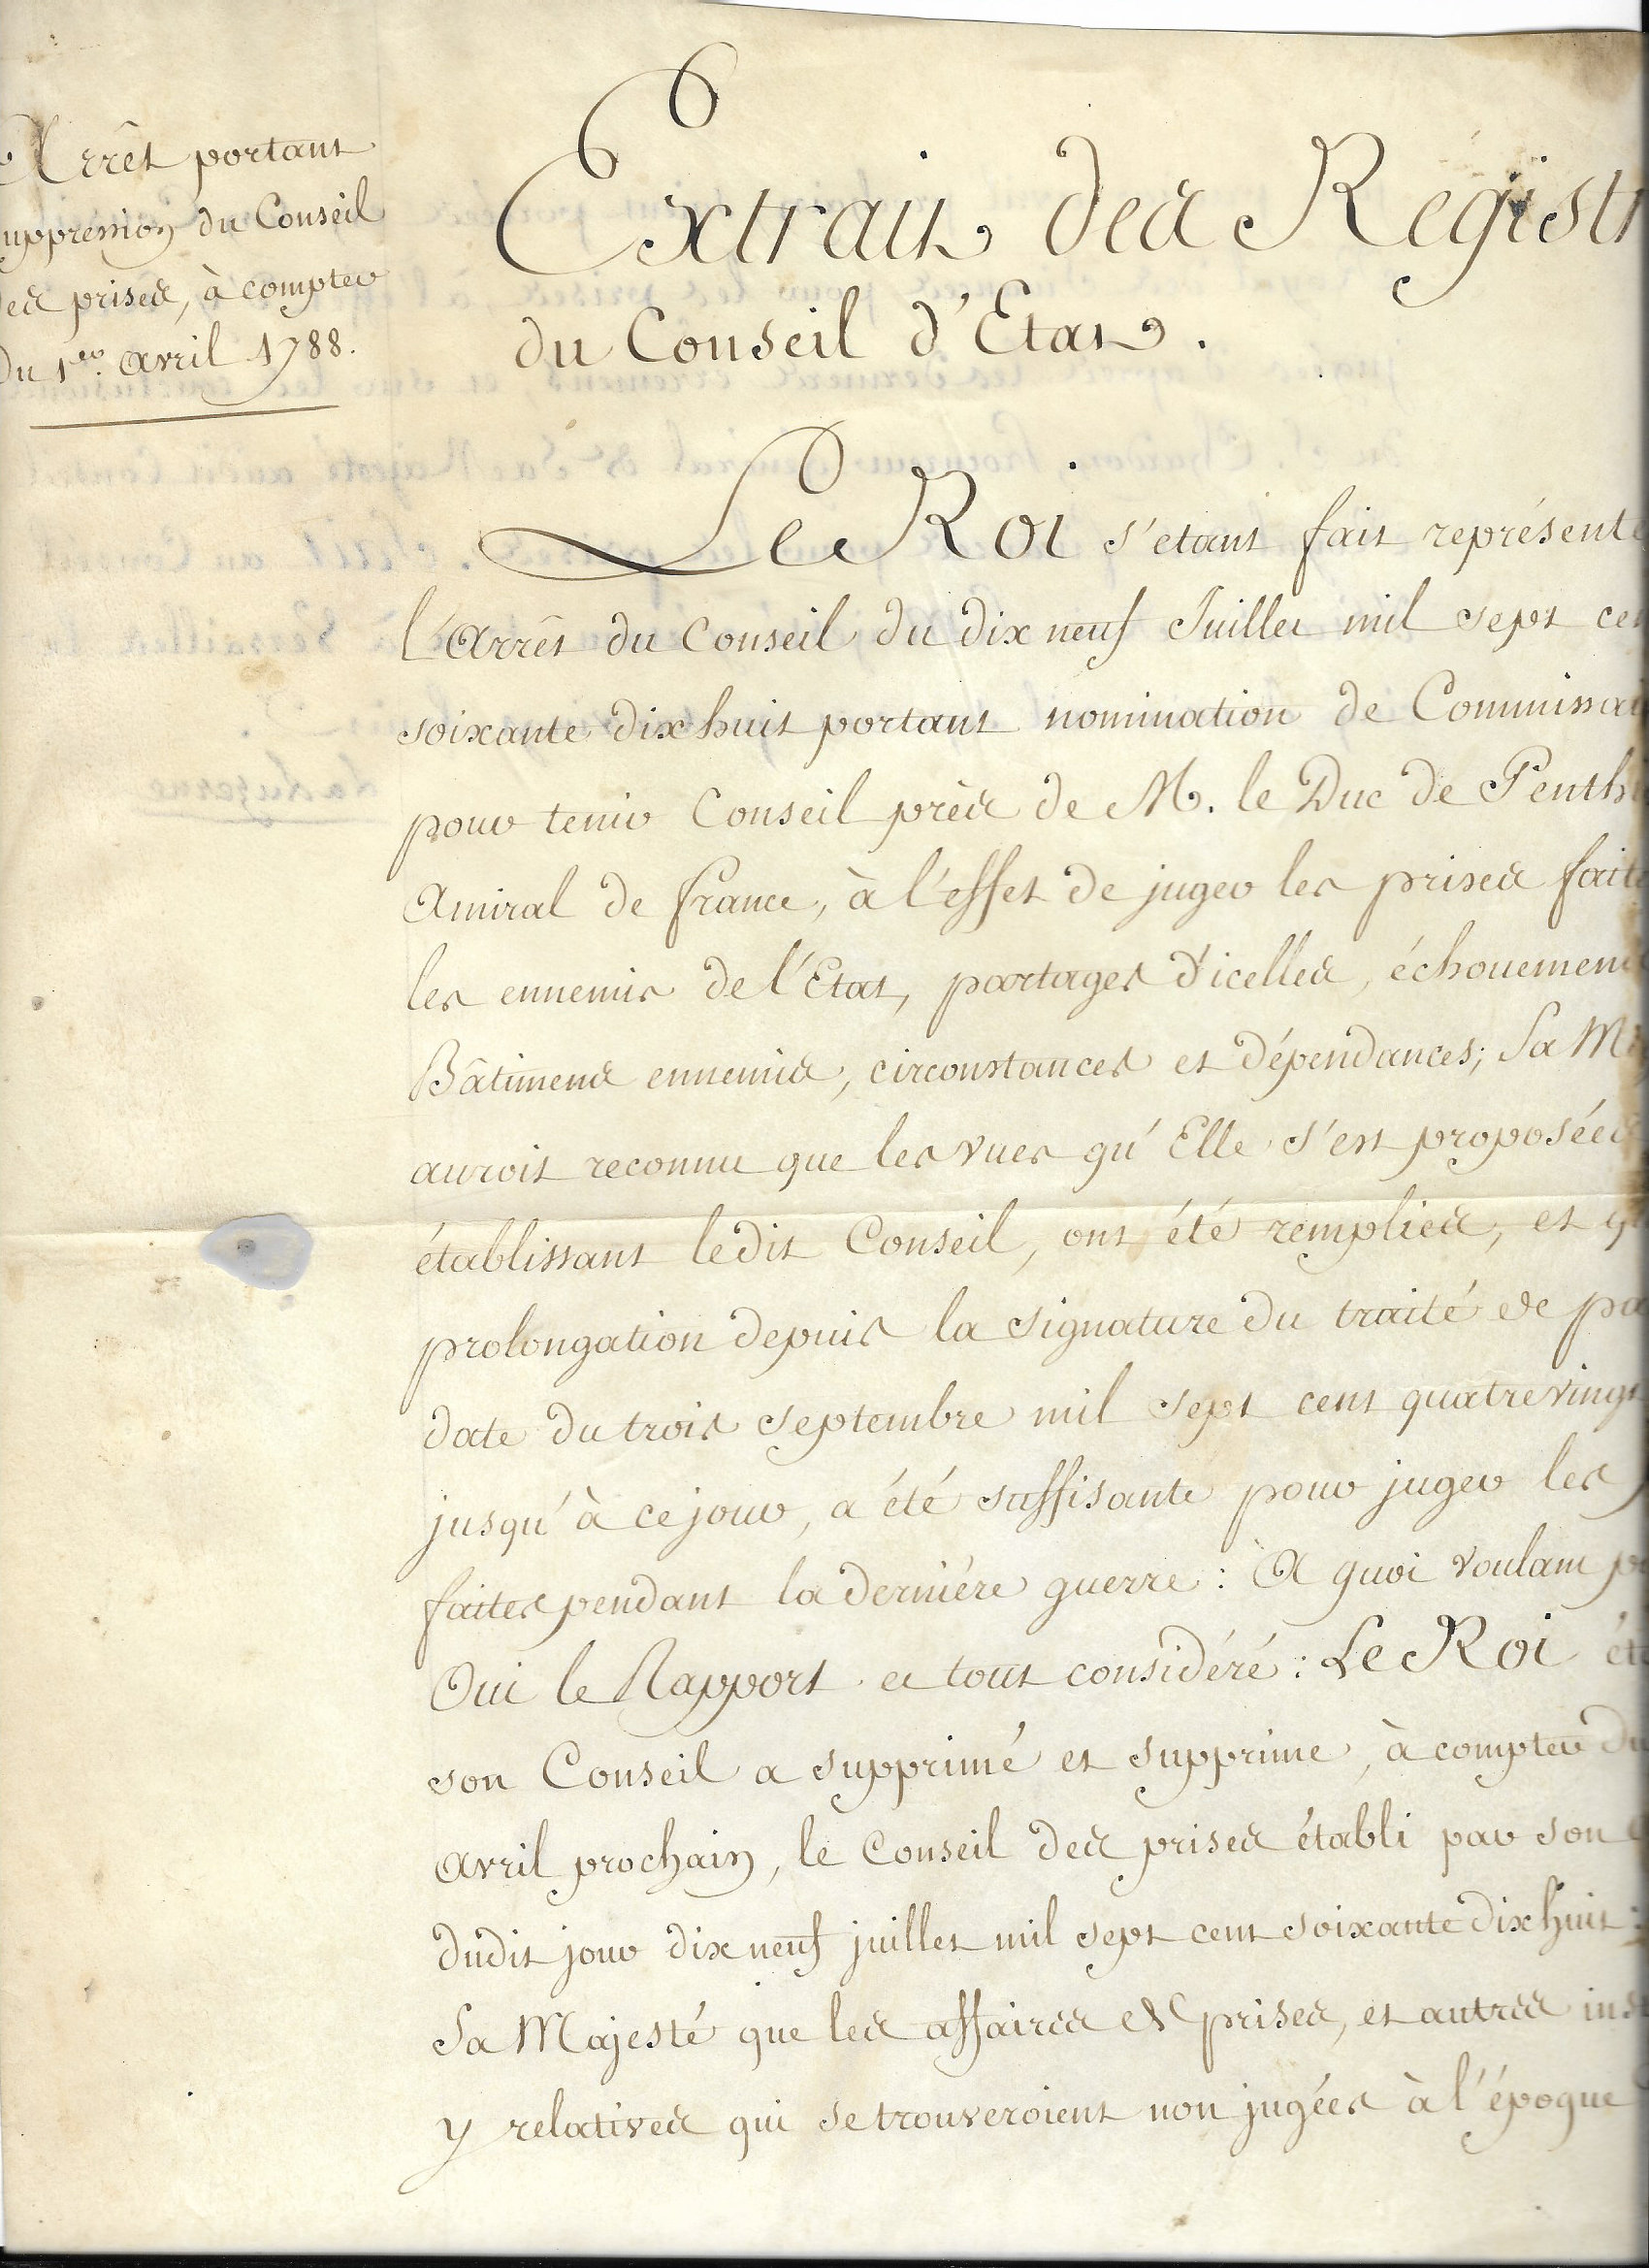 Arrêt portant
uppression du Conseil
des prises, à compter
du 1er. avril 1788.
Extrait des Registr
du Conseil d'Etat.
Le Roi s'etant fait représente
l'Arrêt du Conseil du dix neuf Juillet mil sept cen
soixante dix huit portant nomination de Commissai
pour tenir Conseil près de M. le Duc de Penthi
Amiral de france, à l'effet de juger les prises faite
les ennemis de l'Etat, partages d'icelles, échouemens
Bâtimens ennemis, circonstances et dépendances; Sa Ma
auroit reconnu que les vues qu'Elle s'est proposées
établissant ledit Conseil, ont été remplies, et q
prolongation depuis la signature du traité de pa
date du trois septembre mil sept cent quatre vingt
jusqu'à ce jour, a été suffisante pour juger les p
faites pendant la derniére guerre: A quoi voulant p
Oui le Rapport et tout considéré: Le Roi ét
son Conseil a supprimé et supprime, à compter du
avril prochain, le Conseil des prises établi par son
dudit jour dix neuf juillet mil sept cent soixante dix huit:
Sa Majesté que les affaires de prises, et autres ins
y relatives qui se trouveroient non jugées à l'époque